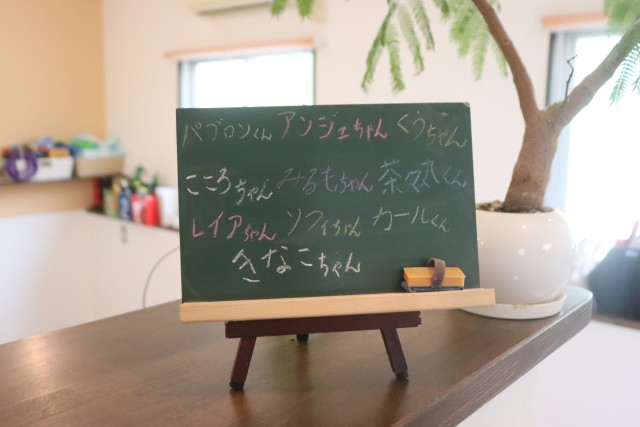 パブロンくん アンジェちゃん くうちゃん
こころちゃん みるもちゃん 茶々丸くん
レイアちゃん ソフィちゃん カールくん
きなこちゃん